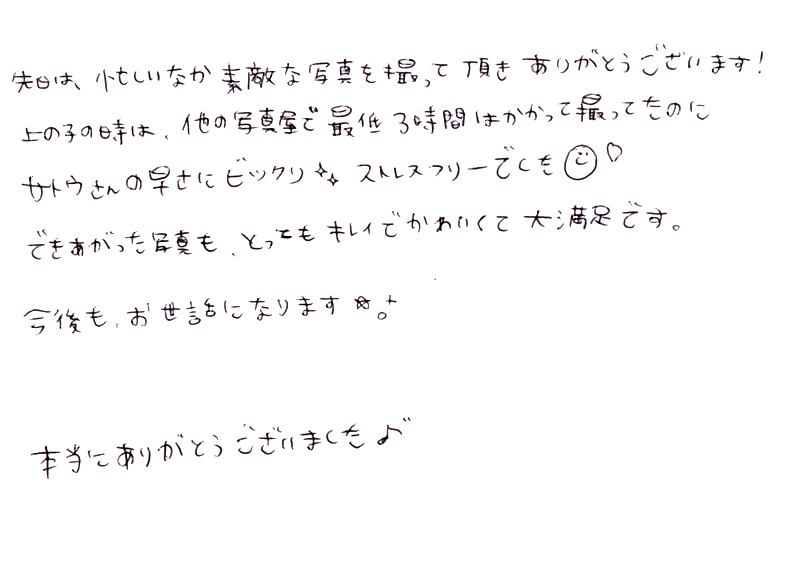 先日は、忙しいなか素敵な写真を撮って頂きありがとうございます!
上の子の時は、他の写真屋で最低3時間はかかって撮ってたのに
サトウさんの早さにビックリ ストレスフリーでした☺♡
できあがった写真も、とってもキレイでかわいくて大満足です。
今後も、お世話になります☆。+
本当にありがとうございました♪